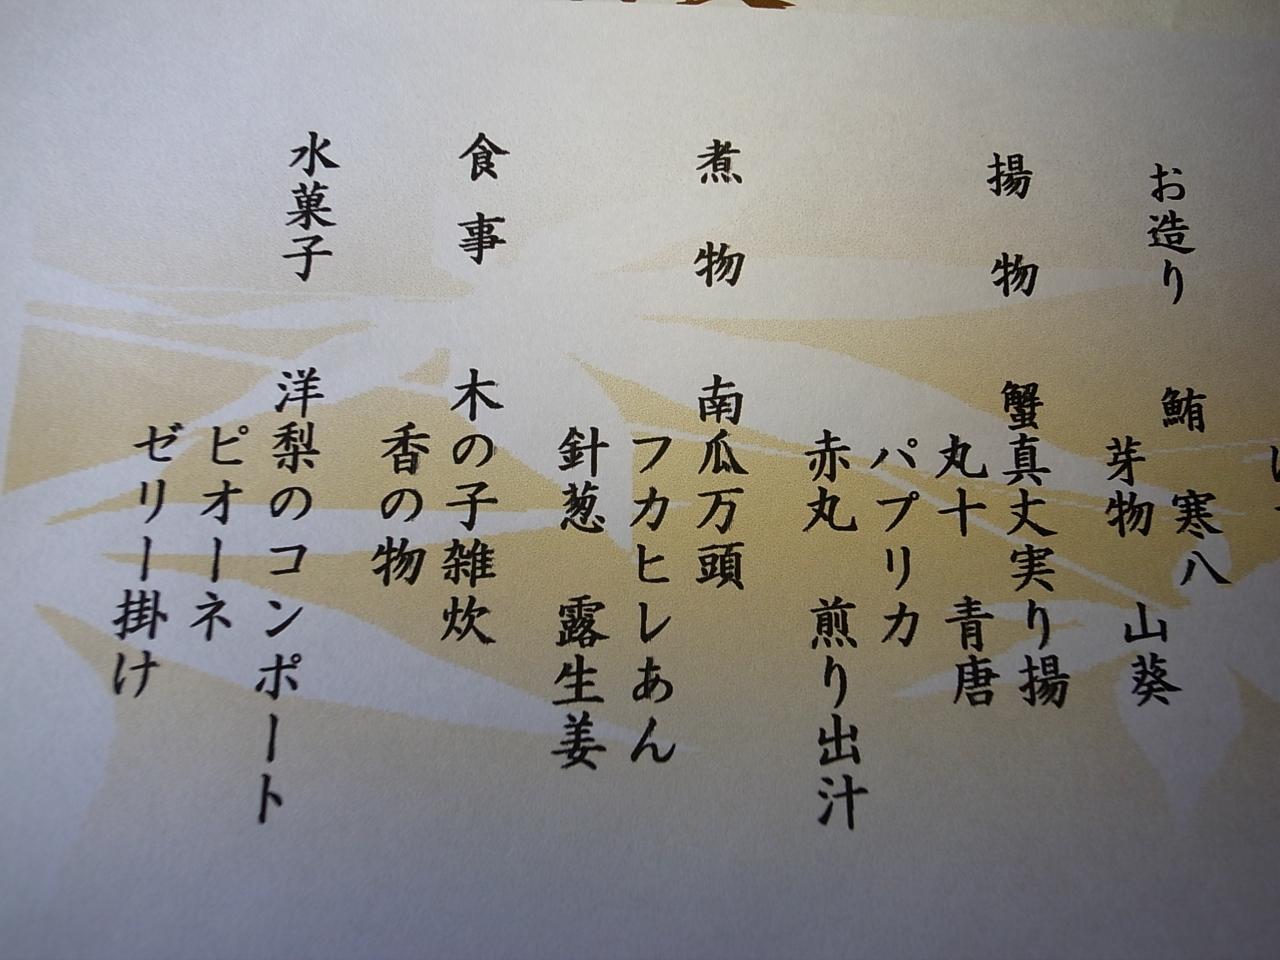 お造り 鮪 寒八
芽物 山葵
揚物 蟹真丈実り揚
丸十 青唐
パプリカ
赤丸 煎り出汁
煮物 南瓜万頭
フカヒレあん
針葱 露生姜
食事 木の子雑炊
香の物
水菓子 洋梨のコンポート
ピオーネ
ゼリー掛け